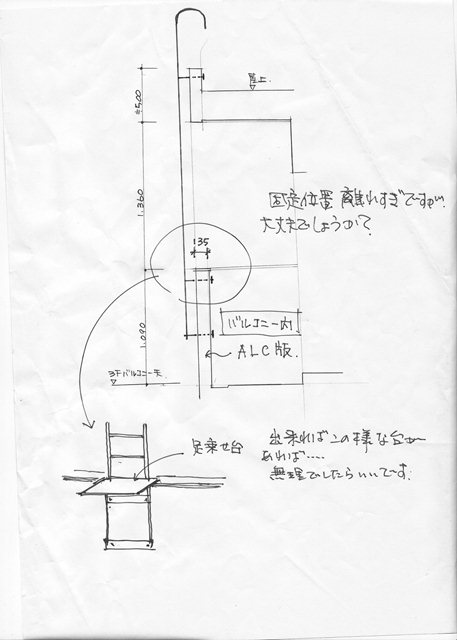 屋上
500
1.360
固定位置 離れすぎですが..
大丈夫でしょうか?
135
バルコニー内
ALC版.
1.090
3Fバルコニー天
足乗せ台
出来ればこの様な台が
あれば....
無理でしたらいいです.